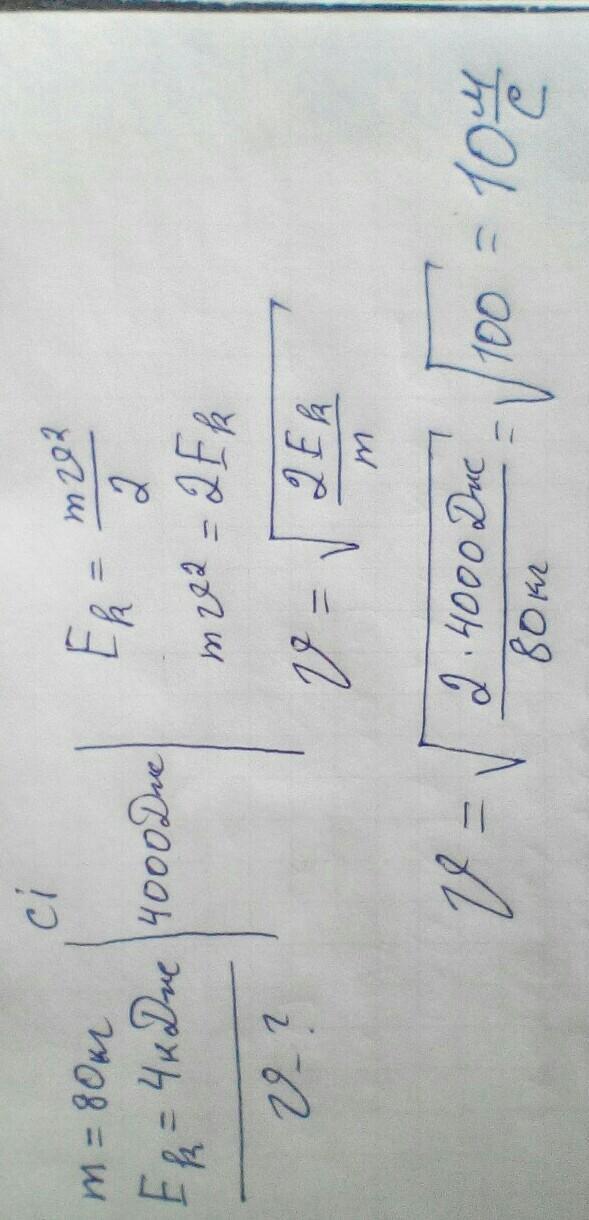 Сі
m = 80кг
E_k = 4кДж | 4000Дж
𝜗 - ?
E_k = m𝜗²/2
m𝜗² = 2E_k
𝜗 = √(2E_k/m)
𝜗 = √(2·4000Дж/80кг) = √100 = 10 м/с